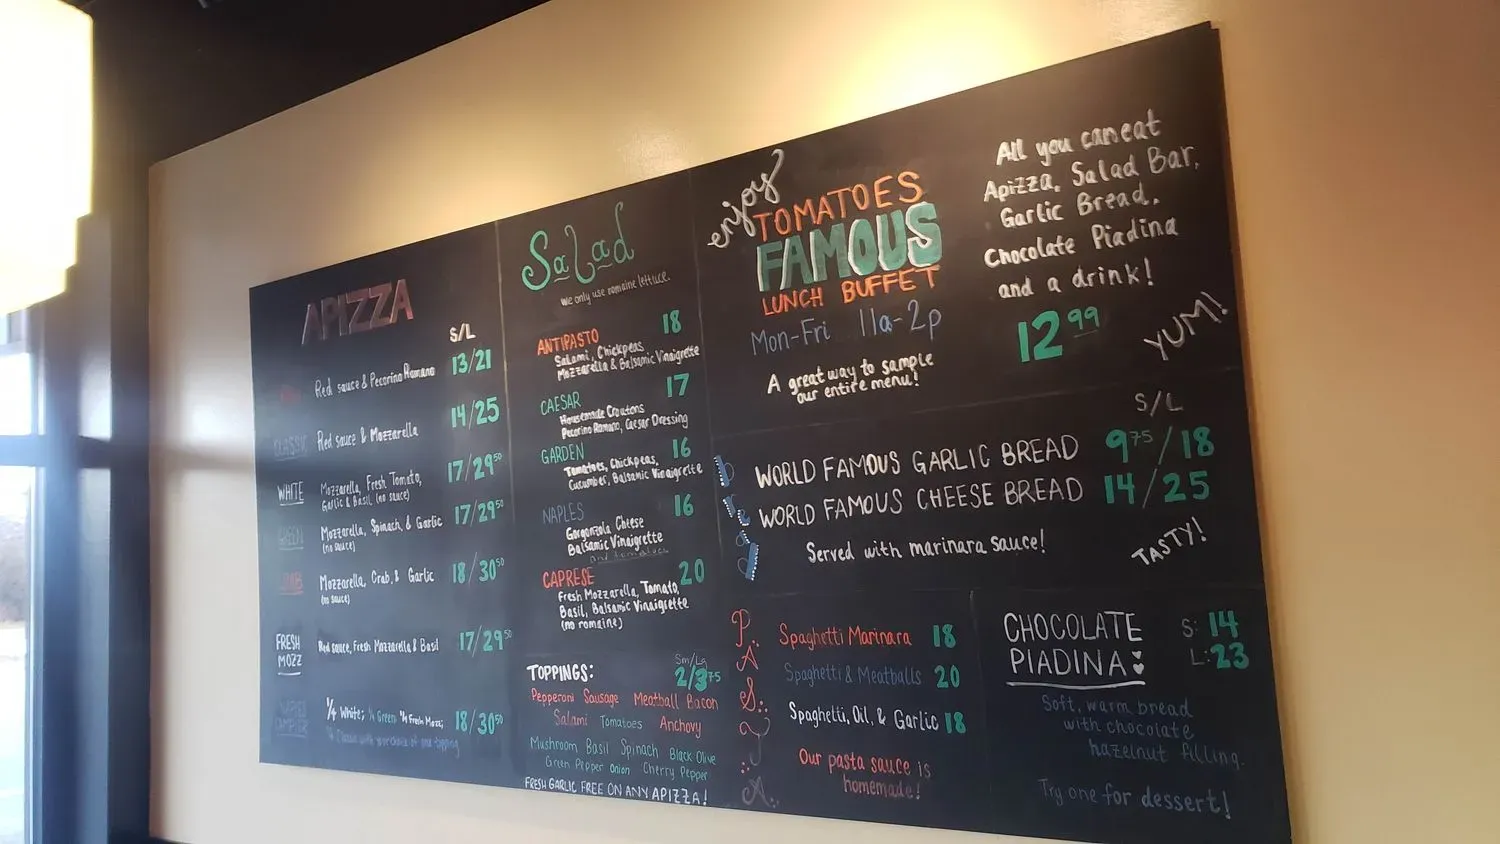 APIZZA
S/L
Red sauce & Pecorino Romano 13/21
CLASSIC Red sauce & Mozzarella 14/25
WHITE Mozzarella, Fresh Tomato, 17/29⁵⁰
Garlic & Basil (no sauce)
GREEN Mozzarella, Spinach, & Garlic 17/29⁵⁰
(no sauce)
CRAB Mozzarella, Crab, & Garlic 18/30⁵⁰
(no sauce)
FRESH
MOZZ Red sauce, Fresh Mozzarella & Basil 17/29⁵⁰
SAMPLER
¼ White; ¼ Green ¼ Fresh Mozz; 18/30⁵⁰
¼ Classic with your choice of one topping
Salad
we only use romaine lettuce.
ANTIPASTO 18
Salami, Chickpeas,
Mozzarella & Balsamic Vinaigrette
CAESAR 17
Homemade Croutons
Pecorino Romano, Caesar Dressing
GARDEN 16
Tomatoes, Chickpeas,
Cucumber, Balsamic Vinaigrette
NAPLES 16
Gorgonzola Cheese
Balsamic Vinaigrette
and tomatoes
CAPRESE 20
Fresh Mozzarella, Tomato,
Basil, Balsamic Vinaigrette
(no romaine)
TOPPINGS: Sm/Lg
2/3⁷⁵
Pepperoni Sausage Meatball Bacon
Salami Tomatoes Anchovy
Mushroom Basil Spinach Black Olive
Green Pepper Onion Cherry Pepper
FRESH GARLIC FREE ON ANY APIZZA!
enjoy
TOMATOES
FAMOUS
LUNCH BUFFET
Mon-Fri 11a-2p
A great way to sample
our entire menu!
All you can eat
Apizza, Salad Bar,
Garlic Bread,
Chocolate Piadina
and a drink!
12⁹⁹
YUM!
S/L
WORLD FAMOUS GARLIC BREAD 9⁷⁵/18
WORLD FAMOUS CHEESE BREAD 14/25
Served with marinara sauce!
TASTY!
PASTA
Spaghetti Marinara 18
Spaghetti & Meatballs 20
Spaghetti, Oil, & Garlic 18
Our pasta sauce is
homemade!
CHOCOLATE S: 14
PIADINA L: 23
Soft, warm bread
with chocolate
hazelnut filling.
Try one for dessert!